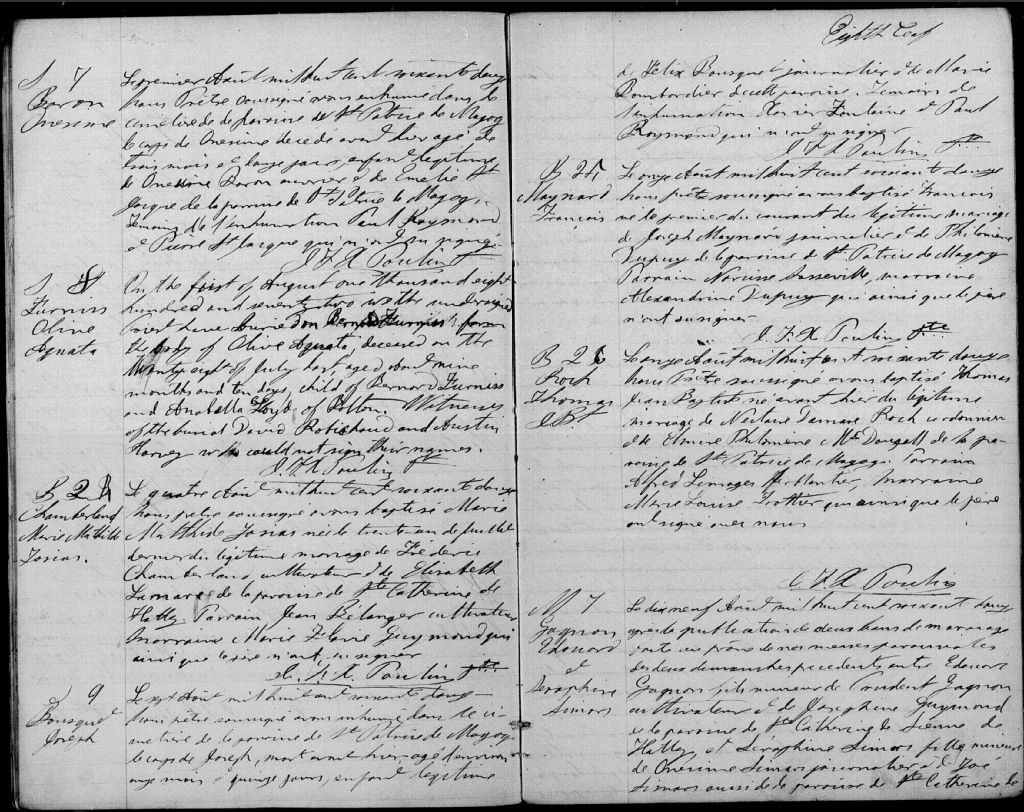 S 7
Baron
Onesime
Le premier Août mil huit cent soixante douze
nous Prêtre soussigné avons inhumé dans le
cimetière de la paroisse de St Patrice de Magog
le corps de Onesime décédé avant hier agé de
trois mois et onze jours, enfant légitime
de Onesime Baron ouvrier & de Emelie St
Jacque de la paroisse de St Patrice de Magog.
Temoins de l'inhumation Paul Raymond
& Pierre St Jacque qui n'ont su signer
J. F. X Poulin Ptre
S 8
Furniss
Olive
Agnata
On the first of August one thousand eight
hundred and seventy two we the undersigned
Priest have buried
the body of Olive Agnata, deceased on the
twenty eight of July last, aged about nine
months and ten days, child of Bernard Furniss
and Anabella of Bolton. Witnesses
of the burial David Robichaud and Austin
Harvey who could not sign their names.
J. F. X Poulin Ptre
B 24
Chamberland
Marie Mathilde
Josias.
Le quatre Août mil huit cent soixante douze
nous prêtre soussigné avons baptisé Marie
Mathilde Josias née le trente un de juillet
dernier du légitime mariage de Fréderic
Chamberland, cultivateur & de Elisabeth
Lamarre de la paroisse de Ste Catherine de
Hatley. Parrain Jean Bélanger cultivateur
marraine Marie Flavie Guymond qui
ainsi que le père n'ont su signer
J. F. X. Poulin Ptre
S 9
Bousquet
Joseph
Le sept Août mil huit cent soixante douze
nous prêtre soussigné avons inhumé dans le ci-
metière de la paroisse de St Patrice de Magog
le corps de Joseph, mort avant hier, agé d'environ
onze mois & quinze jours, enfant légitime
Eighth Leaf
de Félix Bousquet journalier & de Marie
Bombardier de cette paroisse. Temoins de
l'inhumation Xavier Fontaine & Paul
Raymond qui n'ont su signer
J. F. X Poulin Ptre
B 25
Maynard
Francois
Le onze Août mil huit cent soixante douze
nous prêtre soussigné avons baptisé Francois
né le premier du courant du légitime mariage
de Joseph Maynard journalier & de Philomène
Dupuy de la paroisse de St Patrice de Magog
Parrain Narcisse Lasseville, marraine
Alexandrine Dupuy qui ainsi que le père
n'ont su signer
J. F. X Poulin Ptre
B 26
Roch
Thomas
J Bt
Le onze Août mil huit cent soixante douze
nous Prêtre soussigné avons baptisé Thomas
Jean Baptiste né avant hier du légitime
mariage de Nectaire Damase Roch cordonnier
& de Elmire Philomene McDougall de la pa-
roisse de St Patrice de Magog. Parrain
Alfred Limoges ferblantier, marraine
Marie Louise Trottier qui ainsi que le père
ont signé avec nous
J. F. X Poulin
M 7
Gagnon
Edouard
&
Seraphine
Simars
Le dix neuf Août mil huit cent soixante douze
après la publication de deux bans de mariage
faite au prône de nos messes paroissiales
des deux dimanches précédents, entre Edouard
Gagnon fils mineur de Prudent Gagnon
cultivateur & de Josephine Guymond
de la paroisse de Ste Catherine de Sienne de
Hatley et Séraphine Simars fille mineure
de Onesime Simars journalier & de Zoé
Simars aussi de la paroisse de Ste Catherine de